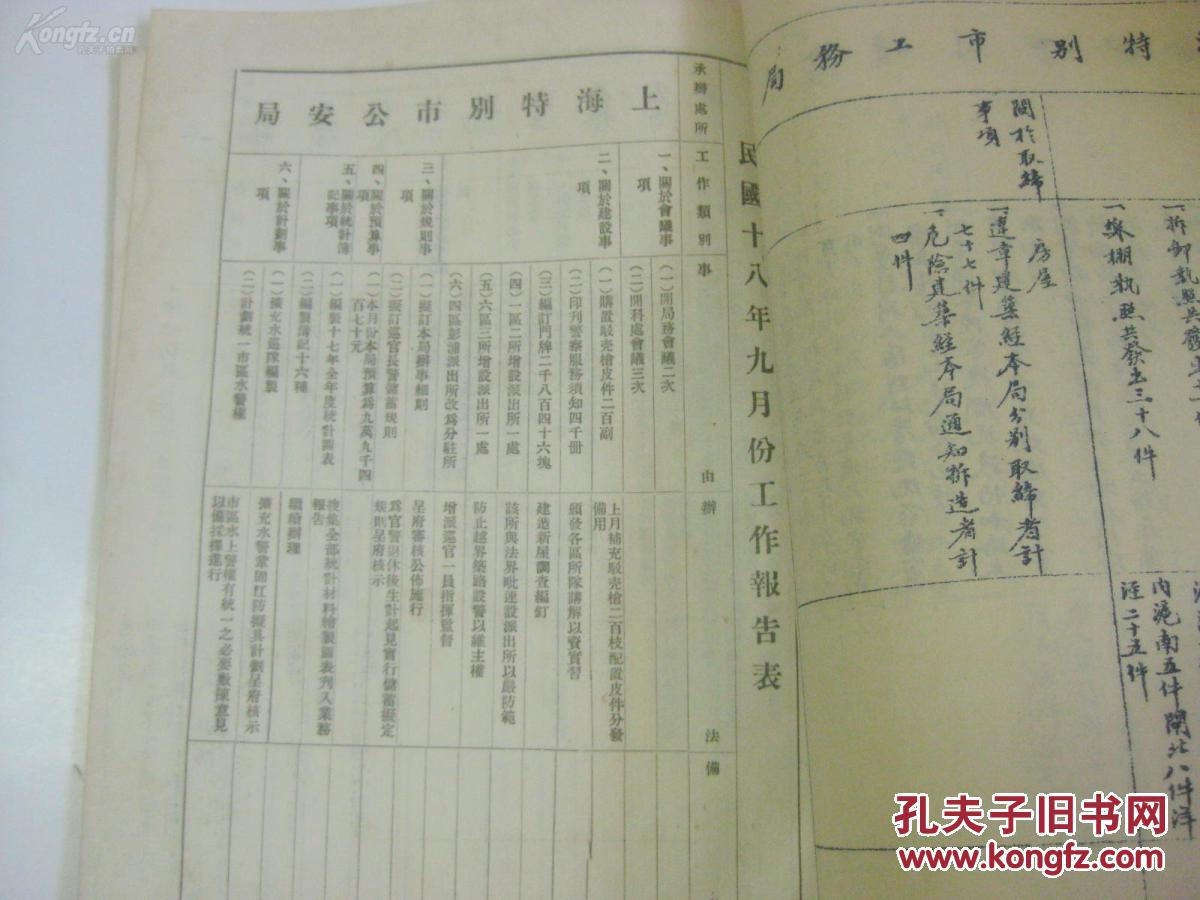 Kongfz.cn
孔夫子旧书网
特別市工務局
關於取締
事項
一拆卸執照共發
一搭棚執照共發出三十八件
房屋
一違章建築經本局分別取締者計
七十七件
一危險建築經本局通知拆造者計
四件
內滬南五件閘北八件洋
涇二十五件
民國十八年九月份工作報告表
承辦處所
工作類別
事由
辦法
備
上海特別市公安局
一、關於會議事
項
二、關於建設事
項
三、關於規則事
項
四、關於預算事
項
五、關於統計簿
記事項
六、關於計劃事
項
(一)開局務會議二次
(二)開科處會議三次
(一)購置駁壳槍皮件二百副
(二)印刊警察服務須知四千冊
(三)編訂門牌二千八百四十六塊
(四)一區二所增設派出所一處
(五)六區三所增設派出所一處
(六)四區彭浦派出所改爲分駐所
(一)擬訂本局辦事細則
(二)擬訂巡官長警儲蓄規則
(一)本月份本局預算爲九萬九千四
百七十元
(一)編製十七年全年度統計圖表
(二)編製簿記十六種
(一)擴充水巡隊編製
(二)計劃統一市區水警權
上月補充駁壳槍二百枝配置皮件分發
備用
頒發各區所隊講解以資實習
建造新屋調查編釘
該所與法界毗連設派出所以嚴防範
防止越界築路設警以維主權
增派巡官一員指揮監督
呈府審核公佈施行
爲官警退休後生計起見實行儲蓄擬定
規則呈府核示
搜集全部統計材料繪製圖表刋入業務
報告
繼續辦理
擴充水警鞏固江防擬具計劃呈府核示
市區水上警權有統一之必要敷陳意見
以備採擇進行
孔夫子旧书网
www.kongfz.com